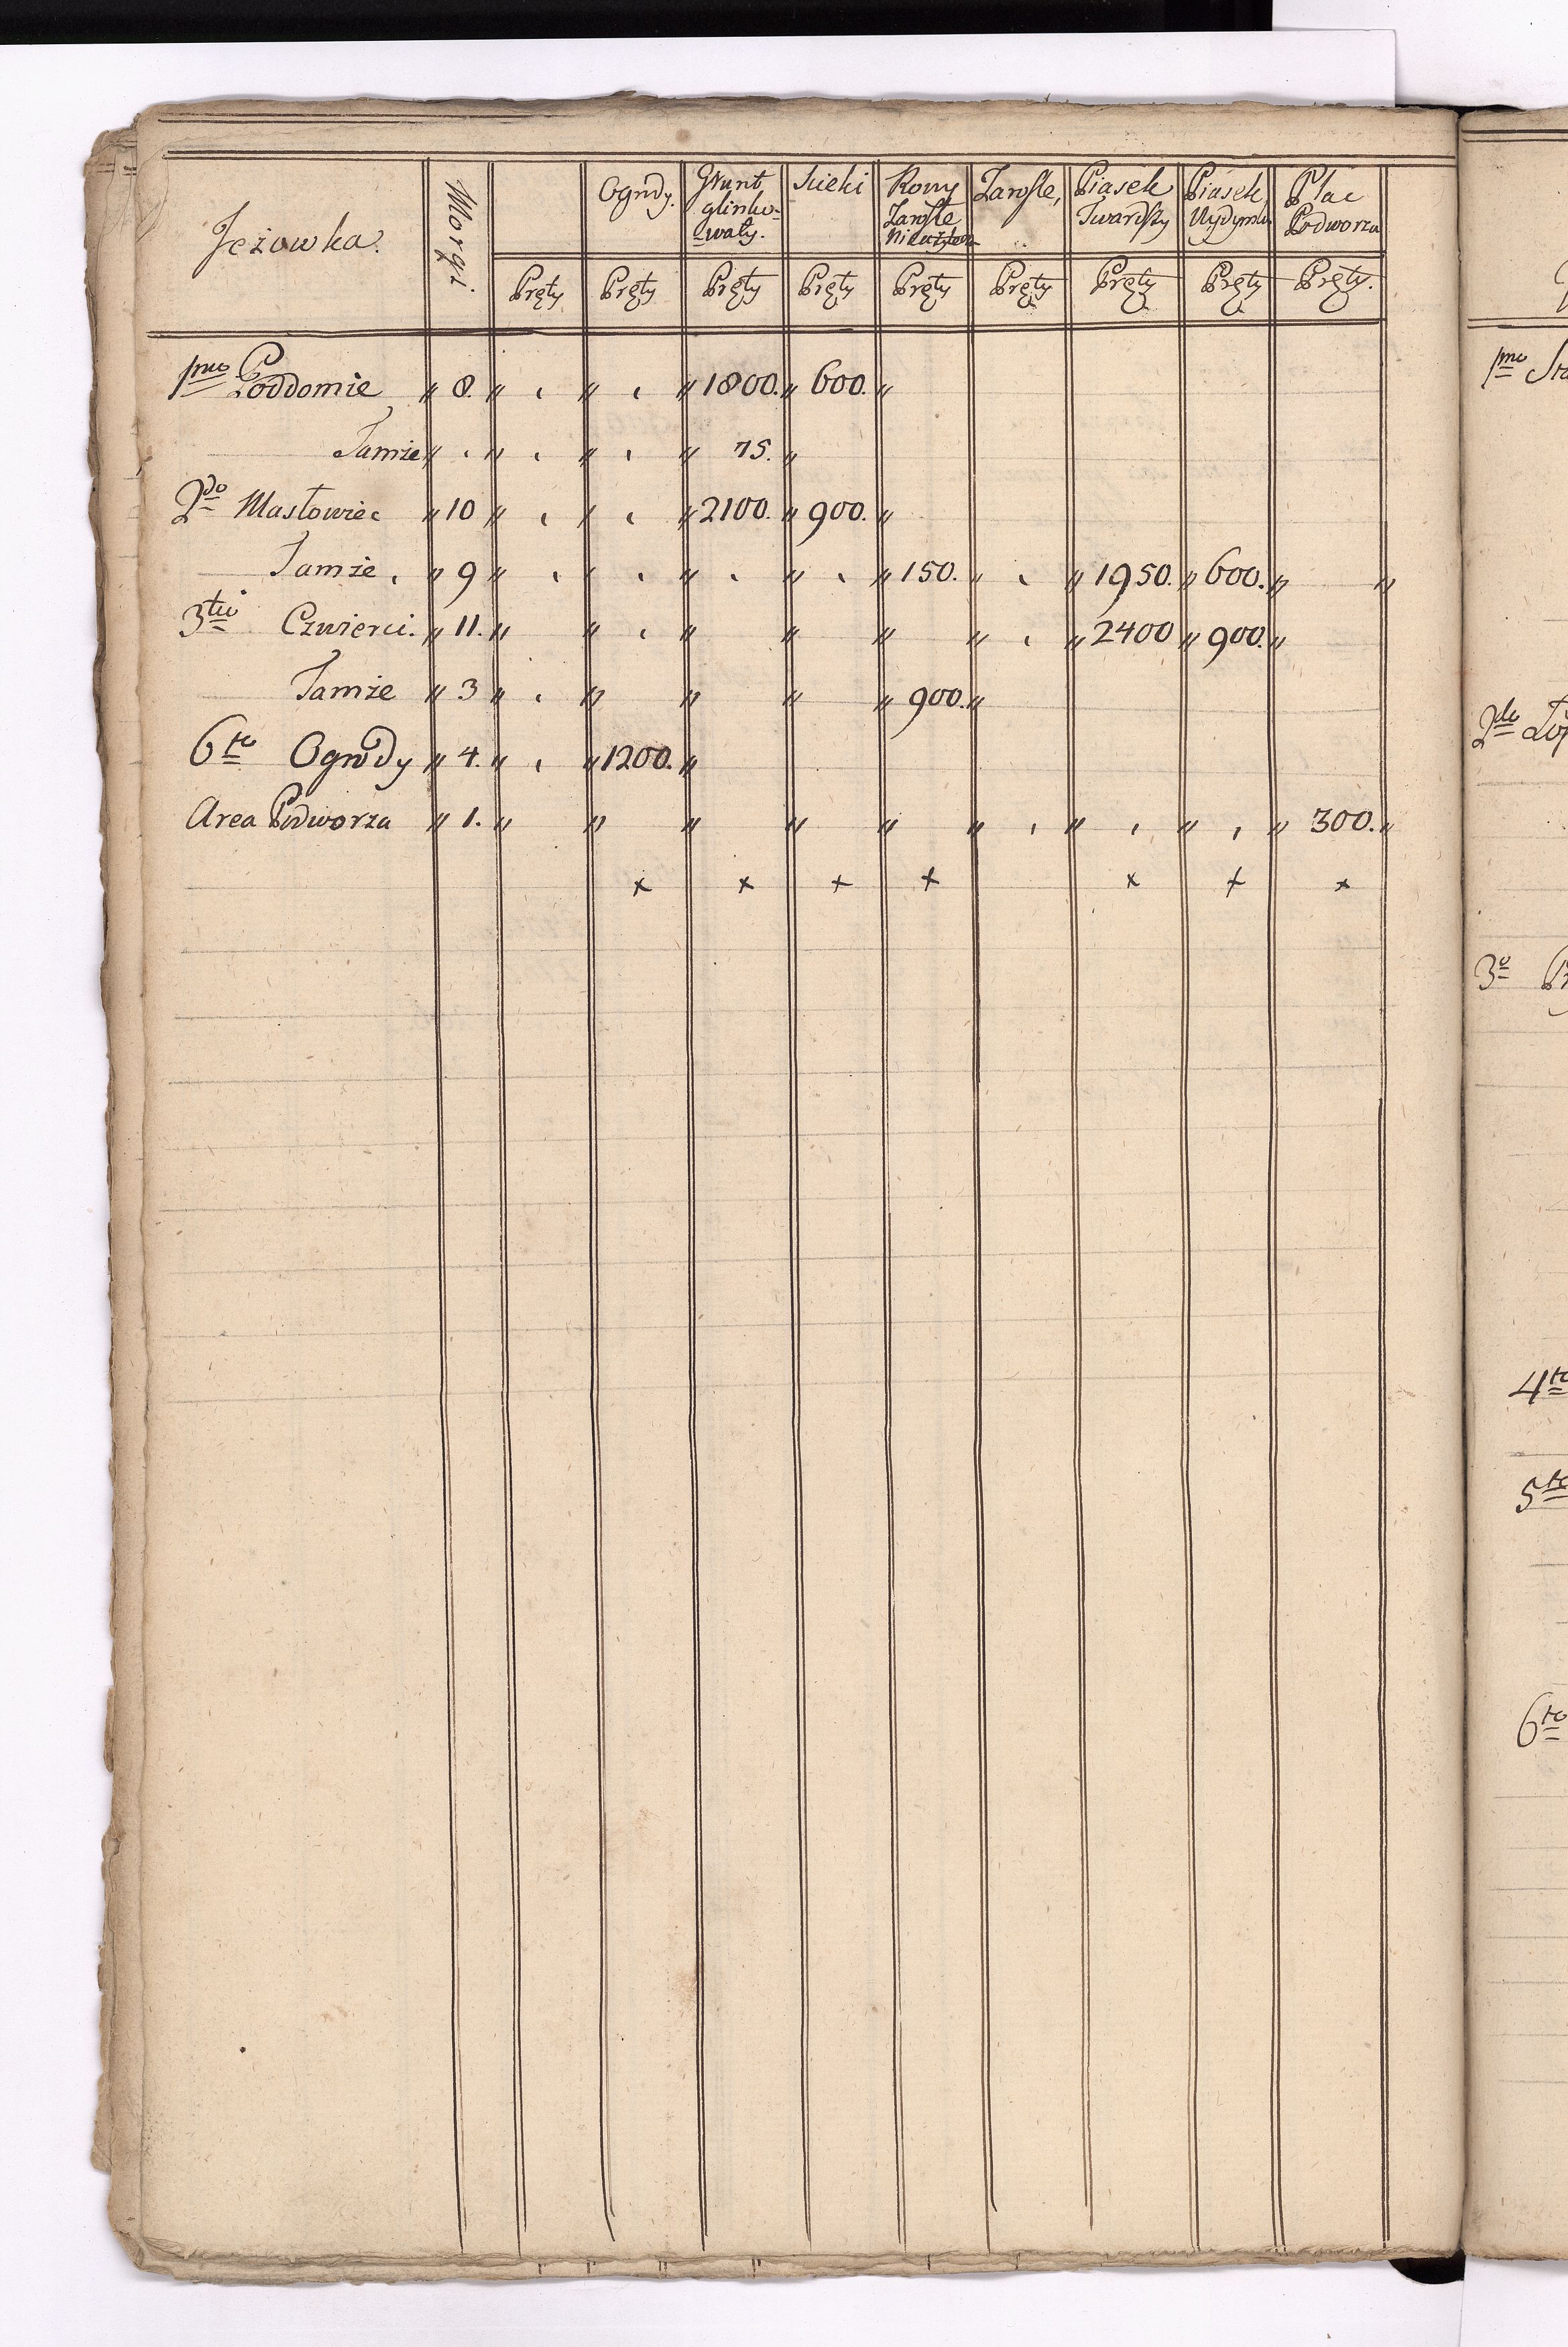 Jeżowka. Morgi. Ogrody. Grunt glinko=wały. Scieki Rowy Zarosle Nieużyteczn Zarosle, Piasek Twardszy Piasek Wydymu Plac Podworza
Pręty Pręty Pręty Pręty Pręty Pręty Pręty Pręty Pręty.
1mo Poddomie " 8. " " " 1800. " 600. "
Tamże " " " " 75. "
2do Masłowiec " 10 " " " 2100. " 900. "
Tamże, " 9 " " " " " 150. " " 1950. " 600. " "
3tio Czwierci. " 11. " " " " " " " 2400 " 900. "
Tamże " 3 " " " " " 900. "
6to Ogrody " 4. " " 1200. "
Area Podworza " 1. " " " " " " " " " 300. "
x x x x x x x
1mo
2do
3o
4to
5to
6to